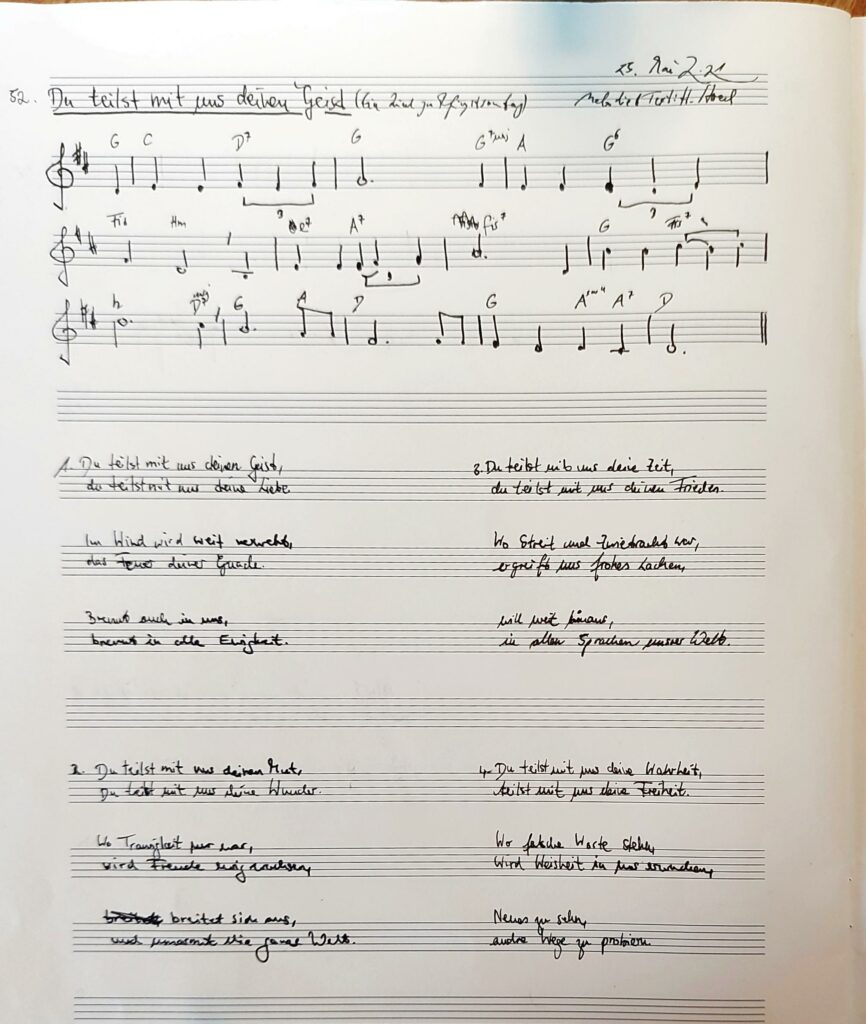 25. Mai 2021
52. Du teilst mit uns deinen Geist (Ein Lied zu Pfingstsonntag)
G C D7 G G7maj A G6
Fis Hm e7 A7 fis7 G Fis7
h D7 G A D G Asus4 A7 D
1. Du teilst mit uns deinen Geist,
du teilst mit uns deine Liebe.
Im Wind wird weit verweht,
das Feuer deiner Gnade.
Brennt auch in uns,
brennt in alle Ewigkeit.
2. Du teilst mit uns deinen Mut,
Du teilst mit uns deine Wunder.
Wo Traurigkeit nur war,
wird Freude
breitet sich aus,
und umarmt die ganze Welt.
3. Du teilst mit uns deine Zeit,
du teilst mit uns deinen Frieden.
Wo Streit und Zwietracht war,
ergreift uns frohes Lachen,
will weit hinaus,
in allen Sprachen unsrer Welt.
4. Du teilst mit uns deine Wahrheit,
teilst mit uns deine Freiheit.
Wo falsche Worte stehn,
Wird Weisheit in uns erwachen,
Neues zu sehn,
andre Wege zu probiern.